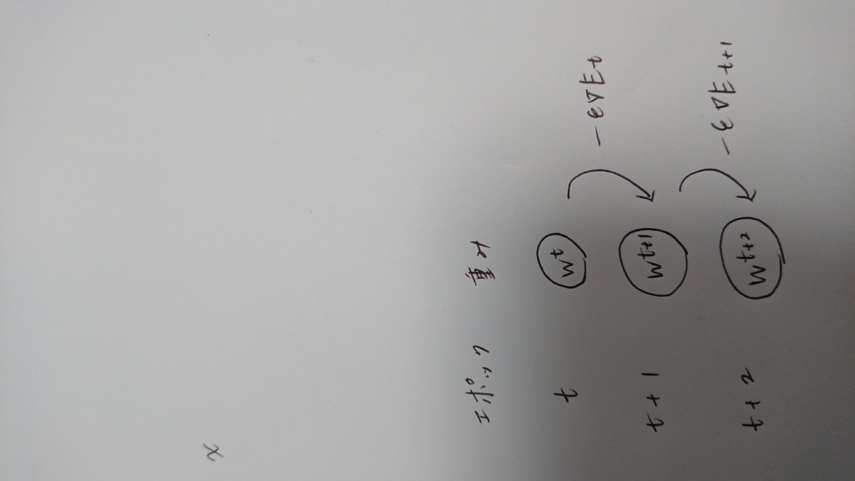 x
エポック 重み
t wt
-ε∇Et
t+1 wt+1
-ε∇Et+1
t+2 wt+2